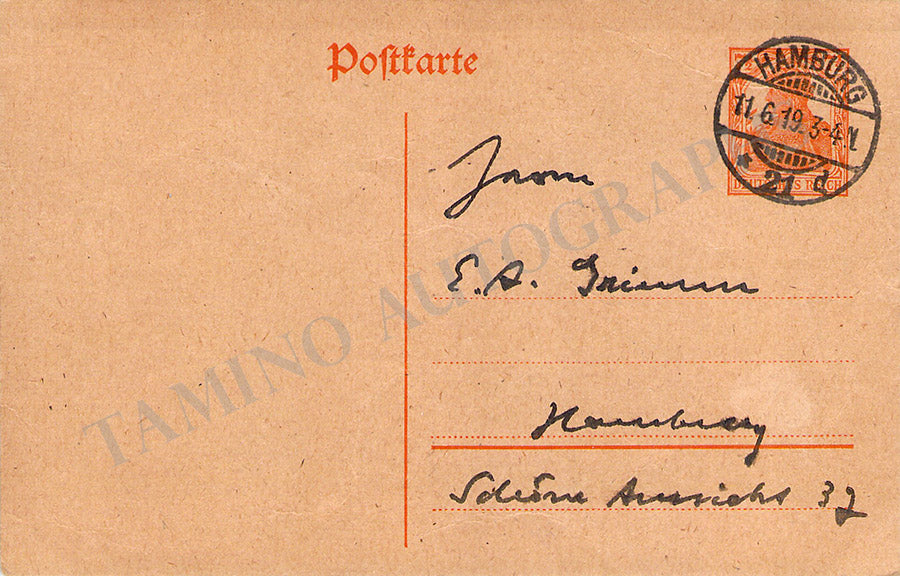 Postkarte
HAMBURG
11.6.19.3-4.N.
* 21 d
DEUTSCHES REICH
Herrn
E. A. Grimm
Hamburg
Schöne Aussicht 37
TAMINO AUTOGRAPH